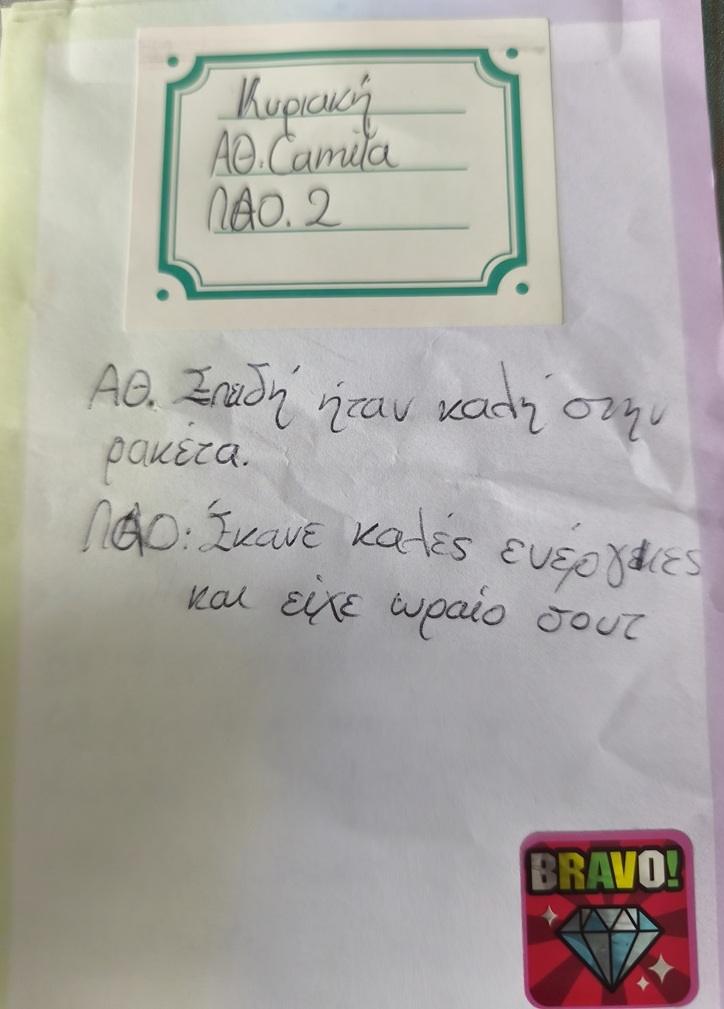 Κυριακή
ΑΘ. Camila
ΠΑΟ. 2
ΑΘ. Σπαδή ήταν καλή στην
ρακέτα.
ΠΑΟ: Έκανε καλές ενέργειες
και είχε ωραίο σουτ
BRAVO!